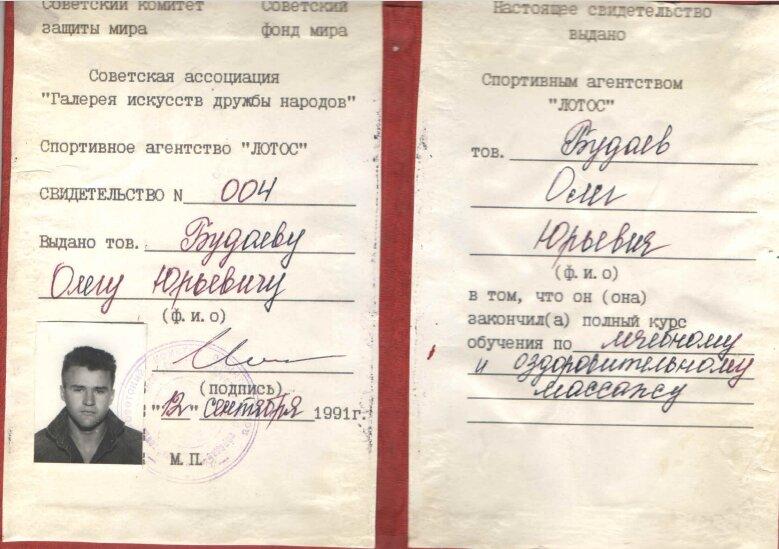 Советский комитет Советский
защиты мира фонд мира
Советская ассоциация
"Галерея искусств дружбы народов"
Спортивное агентство "ЛОТОС"
СВИДЕТЕЛЬСТВО N 004
Выдано тов. Будаеву
Олегу Юрьевичу
(ф.и.о)
(подпись)
"12" сентября 1991г.
М.П.
Настоящее свидетельство
выдано
Спортивным агентством
"ЛОТОС"
тов. Будаев
Олег
Юрьевич
(ф.и.о)
в том, что он (она)
закончил(а) полный курс
обучения по лечебному
и оздоровительному
массажу